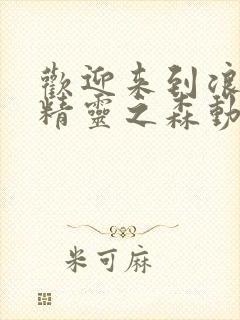 歡迎来到浪
精靈之森動
米可麻